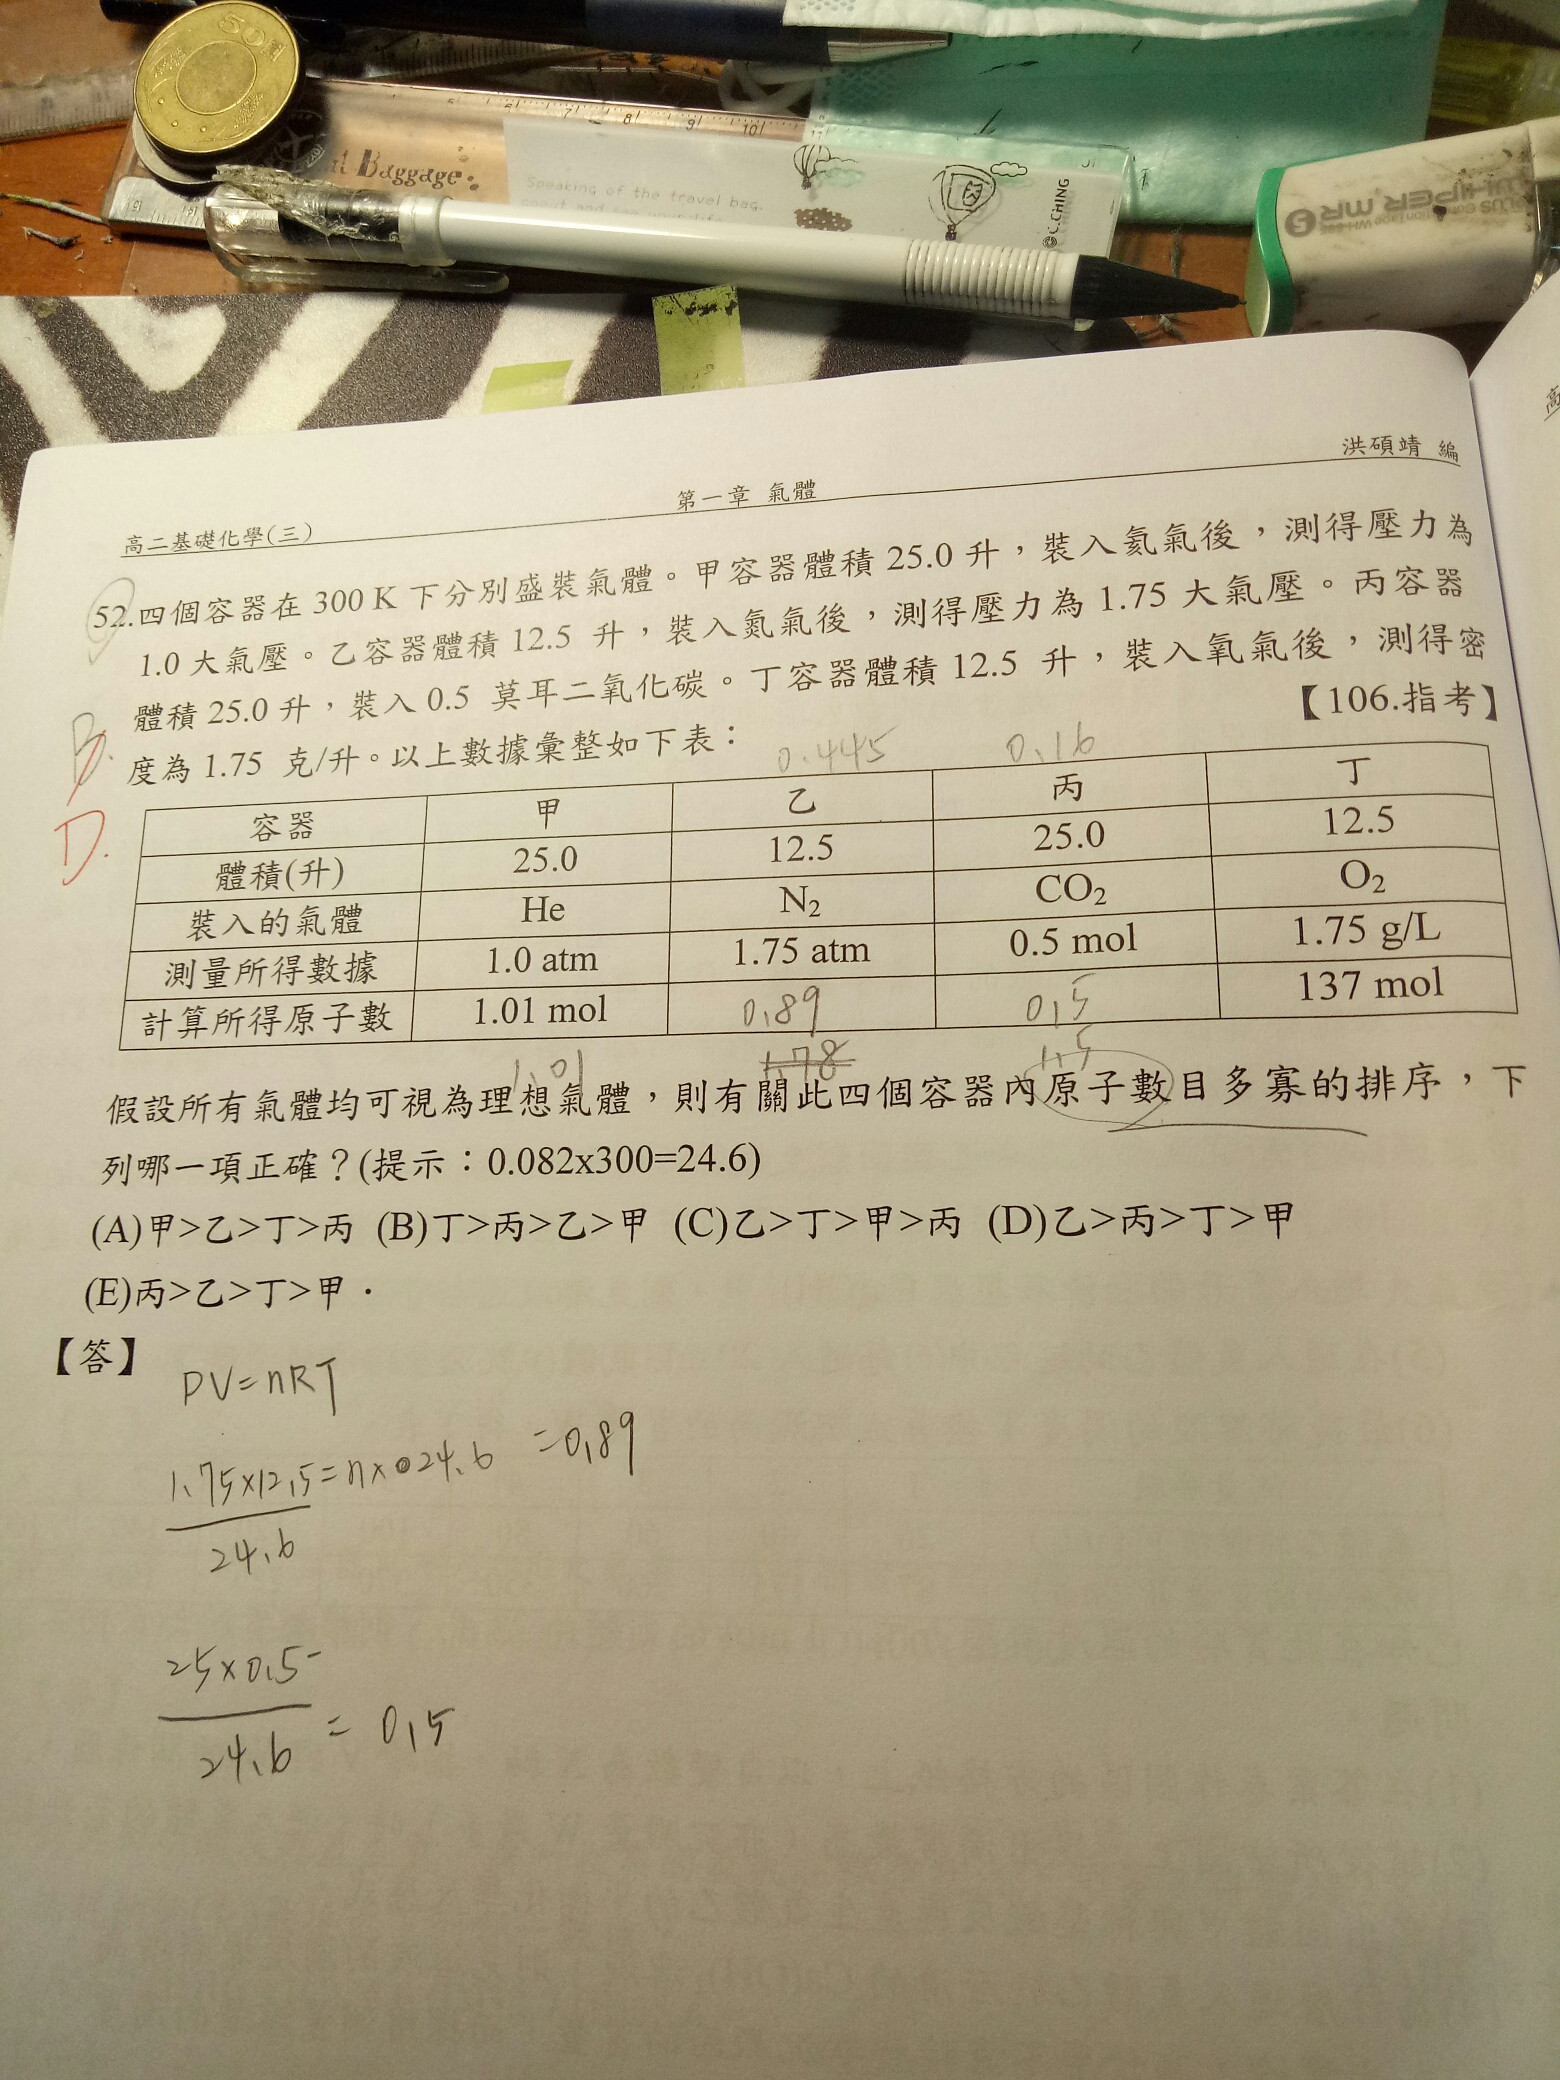 50
7 8 9 10 11
Baggage
Speaking of the travel bag.
©C.CHING
WHIPER MR
PLUS
洪碩靖 編
第一章 氣體
高二基礎化學(三)
52.四個容器在 300 K 下分別盛裝氣體。甲容器體積 25.0 升，裝入氦氣後，測得壓力為
1.0 大氣壓。乙容器體積 12.5 升，裝入氮氣後，測得壓力為 1.75 大氣壓。丙容器
體積 25.0 升，裝入 0.5 莫耳二氧化碳。丁容器體積 12.5 升，裝入氧氣後，測得密
度為 1.75 克/升。以上數據彙整如下表：
【106.指考】
B.
D.
0.445 0.16
容器 甲 乙 丙 丁
體積(升) 25.0 12.5 25.0 12.5
裝入的氣體 He N₂ CO₂ O₂
測量所得數據 1.0 atm 1.75 atm 0.5 mol 1.75 g/L
計算所得原子數 1.01 mol 0.89 0.5 137 mol
1.01 1.78 1.5
假設所有氣體均可視為理想氣體，則有關此四個容器內原子數目多寡的排序，下
列哪一項正確？(提示：0.082x300=24.6)
(A)甲>乙>丁>丙 (B)丁>丙>乙>甲 (C)乙>丁>甲>丙 (D)乙>丙>丁>甲
(E)丙>乙>丁>甲．
【答】
PV=nRT
1.75×12.5=n×024.6 =0.89
24.6
25×0.5
24.6 = 0.5